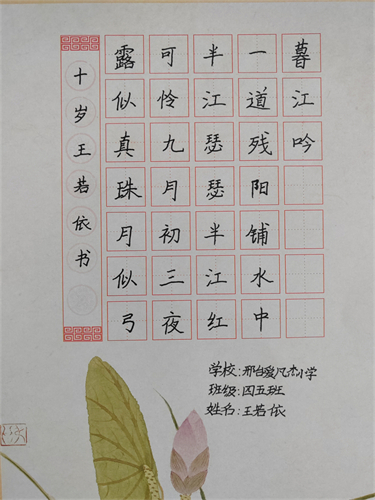 暮江吟
一道残阳铺水中
半江瑟瑟半江红
可怜九月初三夜
露似真珠月似弓
十岁王若依书
学校:邢台爱凡杰小学
班级:四五班
姓名:王若依